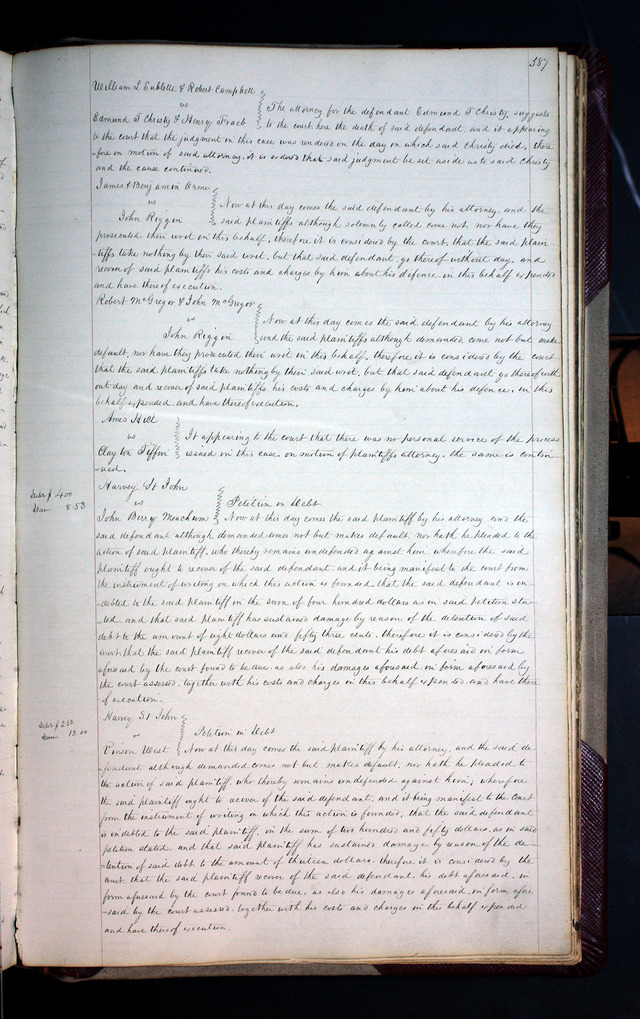 387
William L Sublette & Robert Campbell
vs
Edmund T Christy & Henry
The attorney for the defendant Edmund T Christy, suggests
to the court here the death of said defendant, and it appearing
to the court that the judgment in this case was rendered on the day on which said Christy died, there
-fore on motion of said attorney, it is ordered that said judgment be set aside as to said Christy
and the cause continued.
James & Benjamin Orme
vs
John Riggin
Now at this day comes the said defendant by his attorney, and the
said plaintiffs although solemnly called come not, nor have they
prosecuted their writ in this behalf, therefore it is considered by the court, that the said plain
-tiffs take nothing by their said writ, but that said defendant go thereof without day, and
recover of said plaintiffs his costs and charges by him about his defence in this behalf expended
and have thereof execution.
Robert McGregor & John McGregor
vs
John Riggin
Now at this day comes the said defendant by his attorney
and the said plaintiffs although demanded come not but make
default, nor have they prosecuted their writ in this behalf, therefore it is considered by the court
that the said plaintiffs take nothing by their said writ, but that said defendant go thereof with
out day and recover of said plaintiffs his costs and charges by him about his defence, in this
behalf expended, and have thereof execution.
Amos Hill
vs
Clayton Tiffin
It appearing to the court that there was no personal service of the process
issued in this case, on motion of plaintiffs attorney, the same is contin
-ued.
Harvey St John
vs
John Berry Meachum
Petition in Debt
Debt $ 400
Dam 8.53
Now at this day comes the said plaintiff by his attorney and the
said defendant although demanded comes not but makes default, nor hath he pleaded to the
action of said plaintiff, who thereby remains undefended against him wherefore the said
plaintiff ought to recover of the said defendant, and it being manifest to the court from
the instrument of writing on which this action is founded, that the said defendant is in
-debted to the said plaintiff in the sum of four hundred dollars as in said petition sta
-ted, and that said plaintiff has sustained damage by reason of the detention of said
debt to the amount of eight dollars and fifty three cents. therefore it is considered by the
court, that the said plaintiff recover of the said defendant his debt aforesaid in form
aforesaid by the court found to be due, as also his damages aforesaid, in form aforesaid by
the court assessed, together with his costs and charges in this behalf expended and have there
of execution.
Harvey St John
vs
Vinson West
Petition in Debt
Debt $ 250
Dam 13.00
Now at this day comes the said plaintiff by his attorney, and the said de-
-fendant although demanded comes not but makes default, nor hath he pleaded to
the action of said plaintiff, who thereby remains undefended against him, wherefore
the said plaintiff ought to recover of the said defendant, and it being manifest to the court
from the instrument of writing on which this action is founded, that the said defendant
is indebted to the said plaintiff, in the sum of two hundred and fifty dollars, as in said
petition stated, and that said plaintiff has sustained damage by reason of the de-
-tention of said debt to the amount of thirteen dollars. therefore it is considered by the
court, that the said plaintiff recover of the said defendant, his debt aforesaid, in
form aforesaid by the court found to be due, as also his damages aforesaid, in form afore
-said by the court assessed, together with his costs and charges in this behalf expended
and have thereof execution.